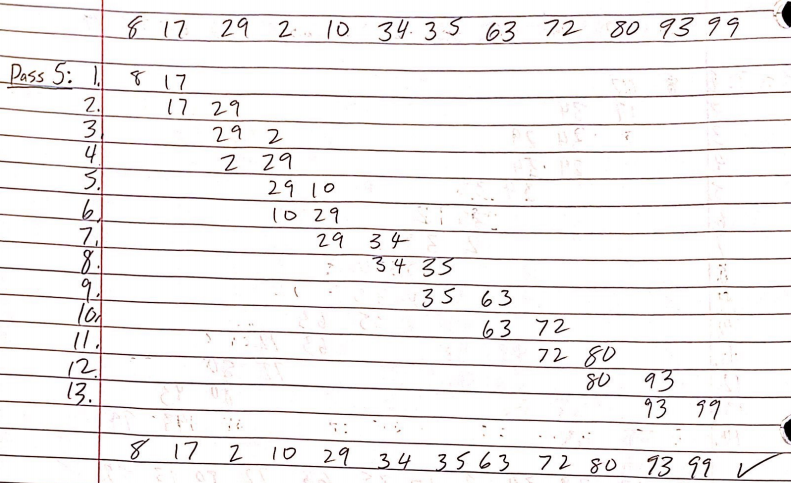 8 17 29 2 10 34 35 63 72 80 93 99
Pass 5: 1. 8 17
2. 17 29
3. 29 2
4. 2 29
5. 29 10
6. 10 29
7. 29 34
8. 34 35
9. 35 63
10. 63 72
11. 72 80
12. 80 93
13. 93 99
8 17 2 10 29 34 35 63 72 80 93 99 ✓